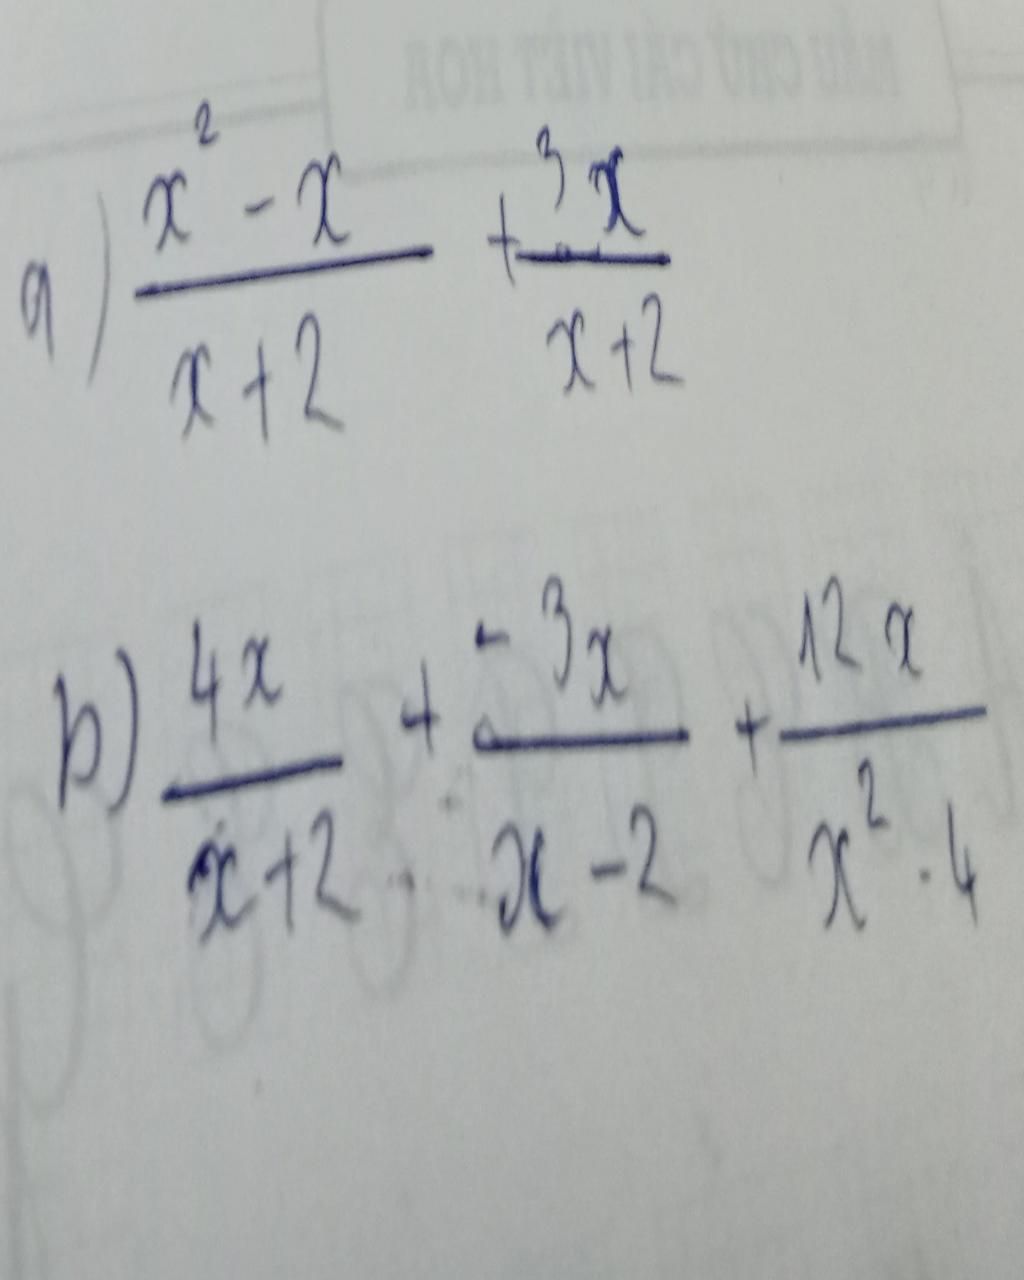 MẪU CHỮ CÁI VIẾT HOA
a) \frac{x^2 - x}{x+2} + \frac{3x}{x+2}
b) \frac{4x}{x+2} + \frac{-3x}{x-2} + \frac{12x}{x^2 - 4}